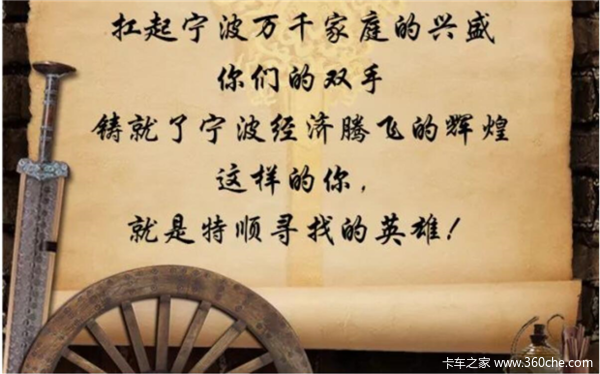 扛起宁波万千家庭的兴盛
你们的双手
铸就了宁波经济腾飞的辉煌
这样的你，
就是特顺寻找的英雄！
卡车之家 www.360che.com